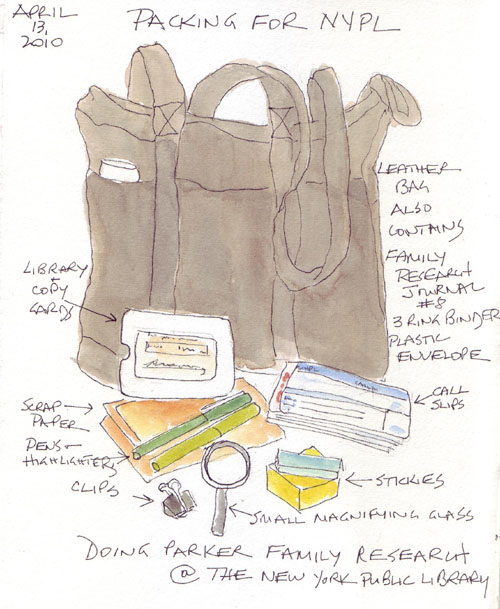 APRIL
13,
2010
PACKING FOR NYPL
LEATHER
BAG
ALSO
CONTAINS
FAMILY
RESEARCH
JOURNAL
#8
3 RING BINDER
PLASTIC
ENVELOPE
LIBRARY
+
COPY
CARDS
SCRAP
PAPER
PENS +
HIGHLIGHTERS
CLIPS
CALL
SLIPS
STICKIES
SMALL MAGNIFYING GLASS
DOING PARKER FAMILY RESEARCH
@ THE NEW YORK PUBLIC LIBRARY